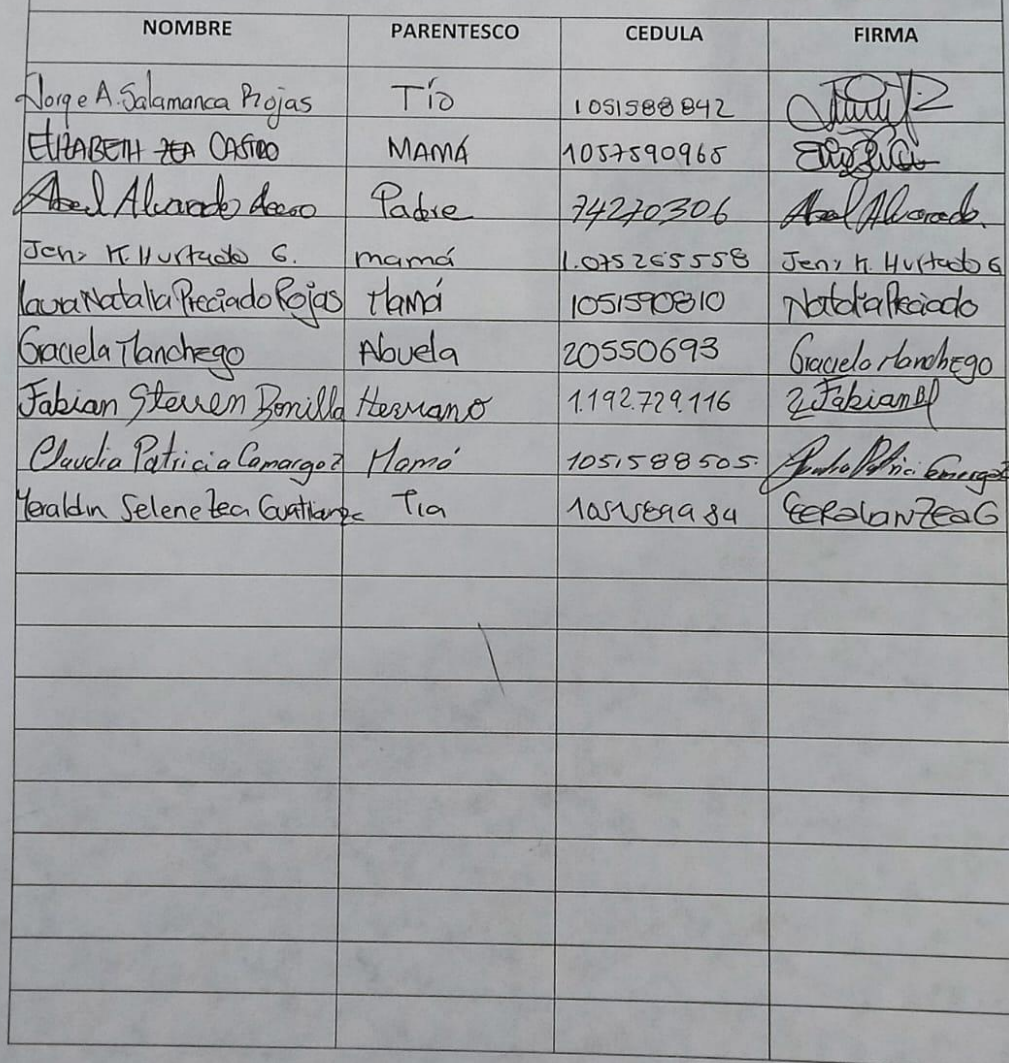 NOMBRE PARENTESCO CEDULA FIRMA
Jorge A. Salamanca Rojas Tío 1051588842
ELIZABETH ZEA CASTRO MAMÁ 1057590965
Abel Alvarado Padre 74270306 Abel Alvarado
Jeny K. Hurtado G. mamá 1.075265558 Jeny K. Hurtado G
Laura Natalia Preciado Rojas Mamá 1051590810 Natalia Preciado
Graciela Manchego Abuela 20550693 Graciela Manchego
Fabian Steven Bonilla Hermano 1.192.729.116 Fabian
Claudia Patricia Camargo Mamá 1051588505.
Yeraldin Selene Zea Tia